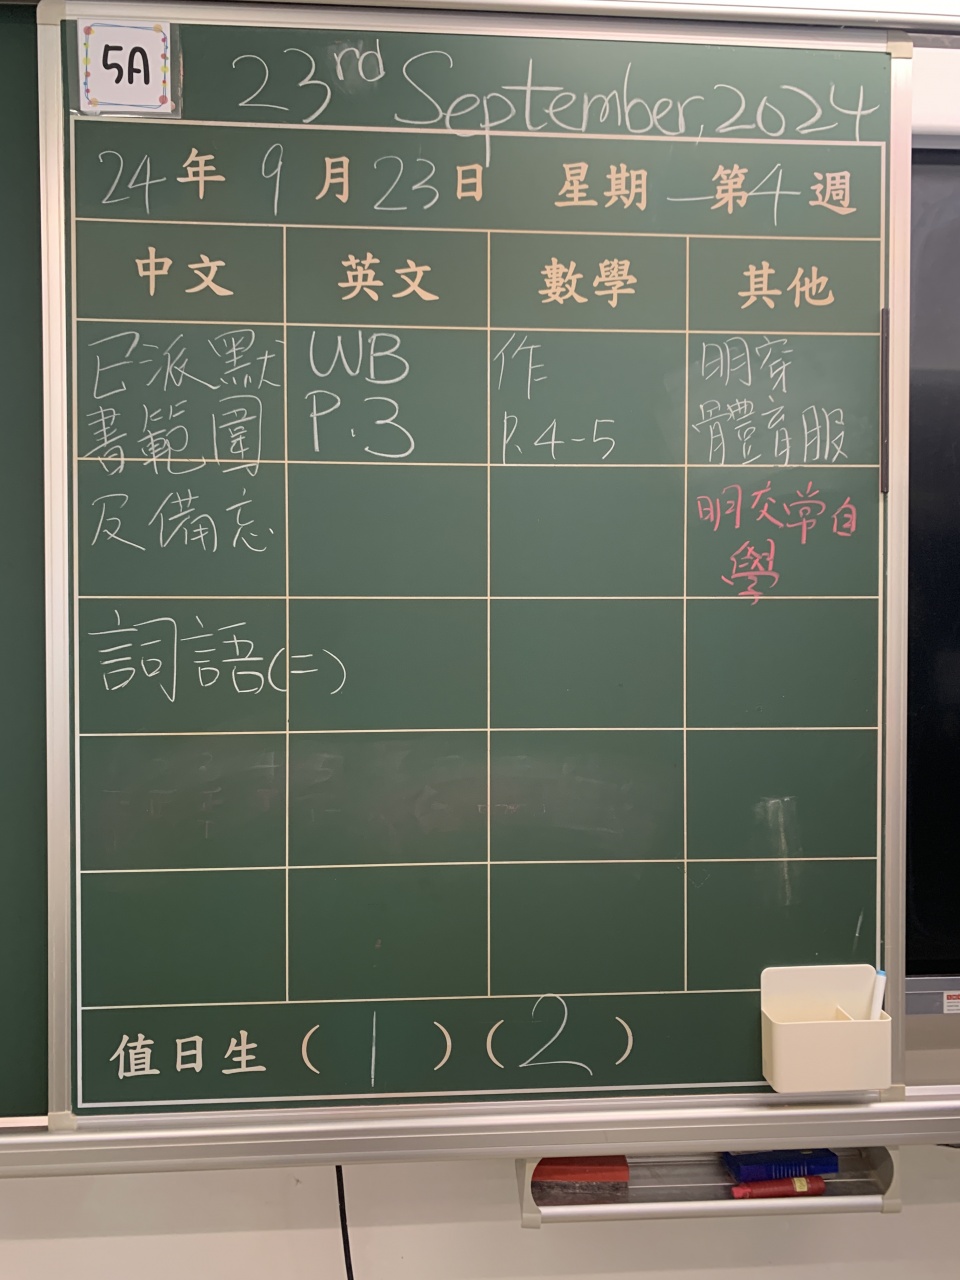 5A
23rd September, 2024
24年9月23日 星期一 第4週
中文 英文 數學 其他
已派默
書範圍
及備忘
詞語(二)
WB
P.3
作
P.4-5
明穿
體育服
明交常自
學
值日生 (1) (2)